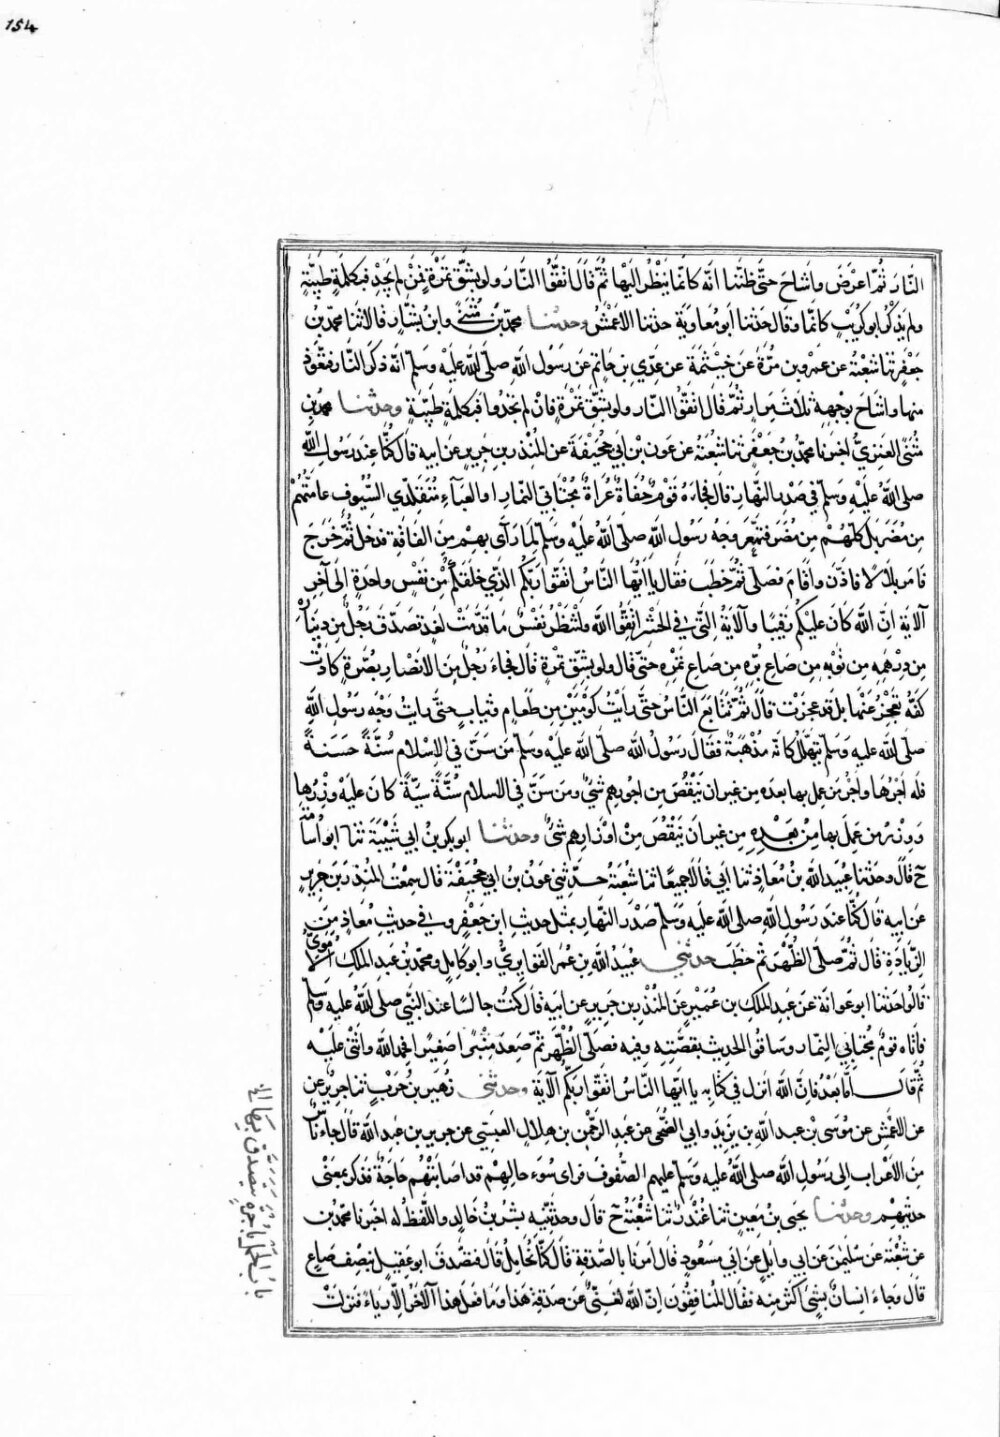 154
النَّارَ ثُمَّ اَعْرَضَ واَشَاحَ حتَّى ظنَنَّا انَّه كانَّما يَنْظُرُ اليْها ثُمَّ قَالَ اتقُوا النَّارَ ولو بشقِّ تَمْرَةٍ فمَنْ لم يَجِدْ فبكلمةٍ طَيِّبَةٍ
ولم يَذْكُر ابوكُرَيْبٍ كانّما وقال حَدثنا ابو مُعاوِيَةَ حدثنا الاعْمَشُ وحدثنا محمدُ بنُ مُثَنَّى وابنُ بشَّارٍ قالا ثنا محمدُ بنُ
جَعْفَرٍ ثنا شعْبَةُ عن عمْرِو بن مُرَّةَ عَن خَيْثَمَةَ عن عَدِيِ بنِ حَاتمٍ عَن رَسُول اللهِ صلّى اللهُ علَيْه وسَلّم انّه ذكَرَ النَّار فتعَوَّذ
منها واَشَاحَ بوجهِهِ ثلاثَ مِرارٍ ثمّ قال اتّقُوا النّار ولو بشِقِّ تَمْرَةٍ فانْ لم تجدُوا فبكلمةٍ طيّبةٍ وحدثنا محمد بن
مُثنَّى العنزيُّ اخبرنا محمّدُ بنُ جَعْفَرٍ ثنا شعْبَةُ عن عون بن ابي جُحَيْفَةَ عن المُنْذِر بن جَرِيرٍ عن ابيه قال كُنَّا عندَ رَسُول اللهِ
صلى اللهُ عليْهِ وسَلّم في صَدْرِ النَّهار قال فجَاءَهُ قَوْمٌ حُفَاةٌ عُراةٌ مُجْتابي النّمار او العبَآءِ مُتَقَلِّدي السُّيوفِ عامَّتُهُمْ
مِن مُضَرَ بل كلُّهُمْ مِن مُضَر فتمَعَّرَ وجْهُ رسُول الله صلى اللهُ عليْه وسَلّم لِمَا رَآى بهِمْ مِنَ الفَاقةِ فدَخل ثُمَّ خَرَجَ
فامر بلالًا فاذّن واَقامَ فصَلّى ثُمَّ خطَبَ فقال يا ايُّها النَّاسُ اتقُوا ربَّكُم الذّي خلقكُمْ مِّن نفْسٍ واحدَةٍ الى آخر
آلايَة انّ الله كانَ عليْكُم رَقيبًا وآلآيَةُ التّى في الحَشْر اتقُوا الله ولتَنْظُرْ نَفْسٌ مَا قدَّمَتْ لِغَدٍ تصَدّقَ رَجُلٌ مِن دِينَارِهِ
مِن دِرْهَمِهِ مِن ثوْبِه مِن صَاعِ بُرِّهِ مِن صَاعِ تَمْرِهِ حتّى قال ولو بشِقِّ تمْرةٍ قال فجاءَ رَجُلٌ مِنَ الانْصَارِ بصُرَّةٍ كادَتْ
كفُّه تعْجِزُ عَنْها بل قد عجَزَت قالَ ثمَّ تَتَابَعَ النَّاسُ حتَّى رَأيْتُ كوْمَيْنِ مِن طعَامٍ وثيابٍ حتّى رأيتُ وجْه رَسُول اللهِ
صلّى الله عليه وسَلّم يَتَهلَّلُ كانّه مُذْهَبَةٌ فقال رسولُ الله صلّى الله عليْه وسَلّم مَن سَنَّ في الاسْلام سُنَّةً حَسَنَةً
فله اَجْرُهَا واَجْرُ من عمِل بها بعده مِن غير ان يَنْقُصَ مِن اجُورهِم شيْءٌ ومَن سَنَّ في الاسلام سُنَّةً سيّئةً كان عليْهِ وِزْرُها
ووِزْرُ من عَمِلَ بها مِنْ بَعْدِهِ مِن غير ان يَنْقُصَ مِنْ اَوْزارِهِم شَيْءٌ وحدثنا ابو بكر بنُ ابي شَيْبَةَ ثنا ابو اُسَامَةَ
ح قالَ وحدثنا عبيدُ الله بنُ مُعَاذٍ ثنا ابي قالا جَميعًا ثنا شعْبَةُ حدّثني عَونُ بنُ ابي جُحَيْفَةَ قال سمِعْتُ المُنْذِرَ بن جَرِيرٍ
عن ابيه قال كُنَّا عند رَسُول اللهِ صلى الله عليْه وسَلّم صَدْرَ النّهار بمثل حديثِ ابن جَعْفَرٍ وفي حديثِ مُعاذٍ مِن
الزِّيادَةِ قالَ ثُمَّ صلّى الظُّهْرَ ثمّ خطَبَ حدثني عبَيْدُ الله بنُ عُمَرَ القوَارِيرِيُّ وابو كامِلٍ ومحمّدُ بنُ عبدِ الملك الاُمَوِيُّ
قالوا حدثنا ابو عوانَةَ عَن عبد الملكِ بن عُمَيْرٍ عَن المُنْذِر بن جَريرٍ عن ابيه قال كنتُ جالسًا عند النّبيِّ صلى اللهُ عليه وسَلّم
فاتاه قومٌ مُجتابي النّمار وسَاقُوا الحديثَ بقصَّتِه وفيه فصَلّى الظُّهْرَ ثمّ صَعِدَ مِنْبرًا صغيرًا فحمد الله واَثْنَى عليْهِ
ثُمَّ قالَ امَّا بَعْدُ فانَّ الله انزل في كتابه يا ايّها النّاسُ اتقُوا ربَّكُم آلآيَةَ وحدثني زُهَيرُ بنُ حَرْبٍ ثنا جرِيرٌ عن
عن الاعْمَشِ عن مُوسَى بن عبد الله بن يزِيدَ وابي الضُّحَى عن عبد الرّحمٰن بن هلالٍ العبسِيّ عن جرير بن عبد الله قالَ جاءَ نَاسٌ
مِنَ الاَعْرابِ الى رَسُول الله صلى اللهُ عليه وسَلّم عليهم الصُّوفُ فراى سُوءَ حالهِمْ قد اَصَابَتْهُم حَاجةٌ فذكر بمعْنَى
حديثِهِم وحدثنا يحيى بنُ مَعِينٍ ثنا غُنْدَرٌ ثنا شعْبَةُ ح قال وحدثنيه بشرُ بنُ خَالِدٍ واللّفظُ له اخبرنا محمدُ بنُ
عن شعْبَة عن سُلَيْمٰن عن ابي وايلٍ عن ابي مَسْعُودٍ قال اُمِرْنَا بالصّدَقةِ قال كُنّا نُحامِلُ قال فتصَدَّقَ ابو عَقِيلٍ بنِصْفِ صَاعٍ
قال وجَاءَ انسانٌ بشَيْءٍ اكثرَ منه فقال المُنَافِقُونَ اِنّ اللهَ لغنِيٌّ عن صَدَقةِ هذا ومَا فعَلَ هذا آلآخَرُ الّا رِياءً فنَزَلَتْ